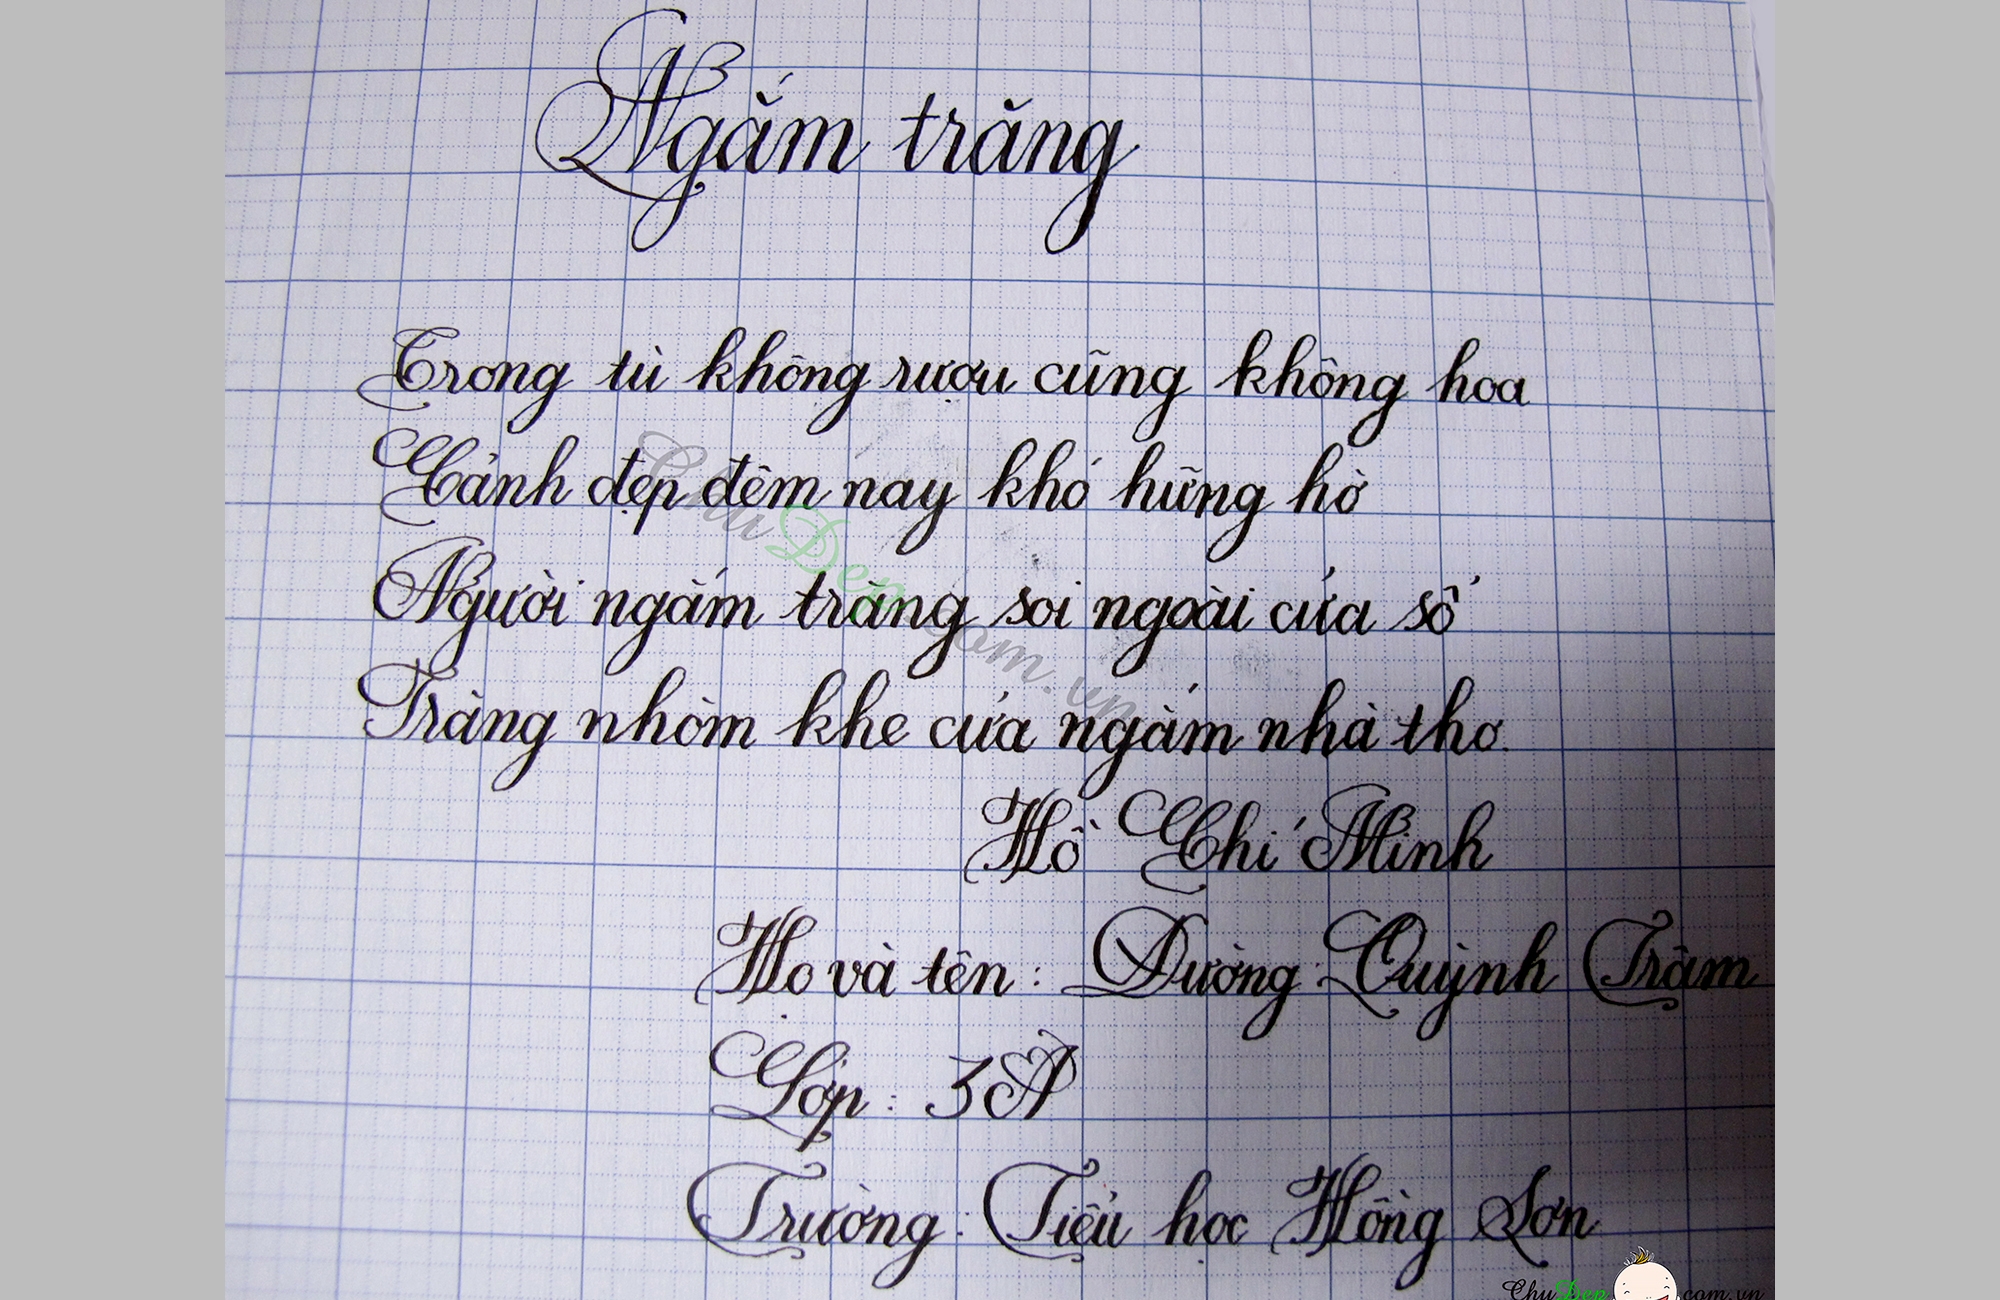 Ngắm trăng
Trong tù không rượu cũng không hoa
Cảnh đẹp đêm nay khó hững hờ
Người ngắm trăng soi ngoài cửa sổ
Trăng nhòm khe cửa ngắm nhà thơ.
Hồ Chí Minh
Họ và tên: Dương Quỳnh Trâm
Lớp: 3A
Trường: Tiểu học Hồng Sơn
ChuDep.com.vn
ChuDep.com.vn